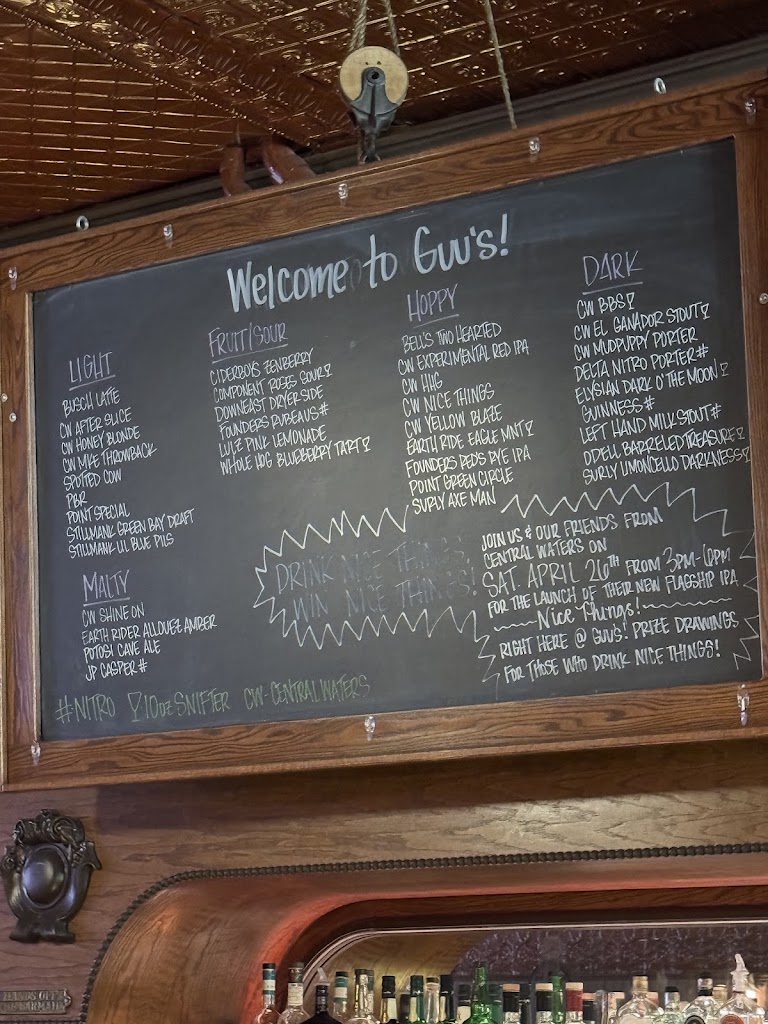 Welcome to Guu's!
LIGHT
BUSCH LATTE
CW AFTER SLICE
CW HONEY BLONDE
CW MKE THROWBACK
SPOTTED COW
PBR
POINT SPECIAL
STILLMANK GREEN BAY DRAFT
STILLMANK LIL BLUE PILS
MALTY
CW SHINE ON
EARTH RIDER ALLOUEZ AMBER
POTOSI CAVE ALE
JP CASPER #
FRUIT/SOUR
CIDERBOYS ZENBERRY
COMPONENT ROSES SOUR
DOWNEAST DRYER SIDE
FOUNDERS RUBEAUS #
LULZ PINK LEMONADE
WHOLE HOG BLUEBERRY TART
HOPPY
BELL'S TWO HEARTED
CW EXPERIMENTAL RED IPA
CW HHG
CW NICE THINGS
CW YELLOW BLAZE
EARTH RIDE EAGLE MNT
FOUNDERS RED'S RYE IPA
POINT GREEN CIRCLE
SURLY AXE MAN
DARK
CW BBS
CW EL GANADOR STOUT
CW MUDPUPPY PORTER
DELTA NITRO PORTER #
ELYSIAN DARK O' THE MOON
GUINNESS #
LEFT HAND MILK STOUT #
ODELL BARRELED TREASURE
SURLY LIMONCELLO DARKNESS
DRINK NICE THINGS
WIN NICE THINGS!
JOIN US & OUR FRIENDS FROM
CENTRAL WATERS ON
SAT. APRIL 26TH FROM 3PM-6PM
FOR THE LAUNCH OF THEIR NEW FLAGSHIP IPA
Nice Things!
RIGHT HERE @ GUU'S! PRIZE DRAWINGS
FOR THOSE WHO DRINK NICE THINGS!
#=NITRO 10oz SNIFTER CW-CENTRAL WATERS
HANDS OFF
THE BARMAID